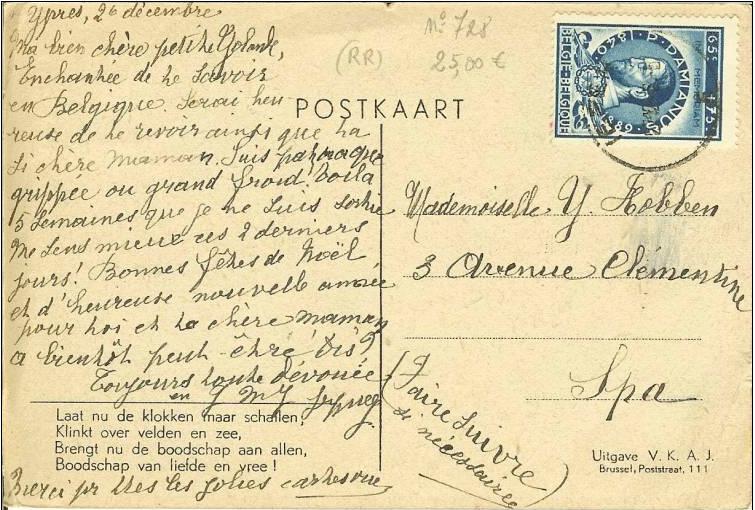 Ypres, 26 décembre
Ma bien chère petite Yolande,
Enchantée de te savoir
en Belgique. Serai heu
reuse de te revoir ainsi que ta
si chère maman. Suis patraque
grippée ou grand froid! Voilà
5 semaines que je ne suis sortie
Me sens mieux ces 2 derniers
jours! Bonnes fêtes de Noël
et d'heureuse nouvelle année
pour toi et ta chère maman
à bientôt peut-être! dis?
Toujours toute dévouée
en
Laat nu de klokken maar schallen,
Klinkt over velden en zee,
Brengt nu de boodschap aan allen,
Boodschap van liefde en vree !
Merci pr ttes les jolies cartes vue
No 728
(RR)
25,00 €
POSTKAART
65c
P. DAMIANUS
1840
1889
BELGIE-BELGIQUE
Mademoiselle Y. Robben
3 Avenue Clémentine
Spa
(Faire suivre
si nécessaire)
Uitgave V. K. A. J.
Brussel, Poststraat, 111